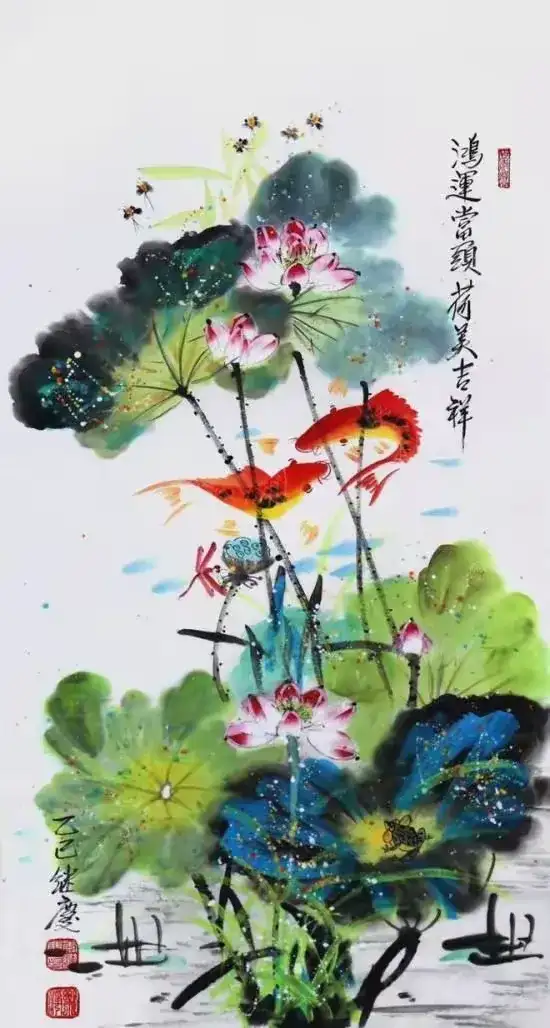 鴻運當頭荷美吉祥
乙巳继慶